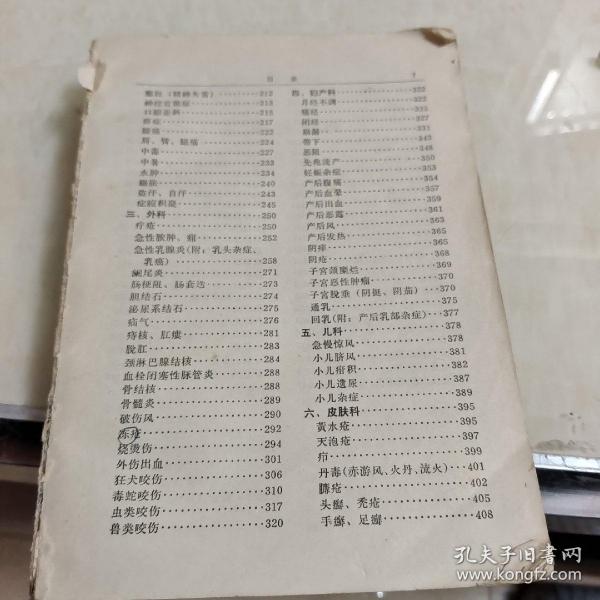 目 录 7
癫狂（精神失常）················212
神经官能症················213
口眼歪斜················215
痹症················217
腰痛················222
肩、臂、腿痛················224
中毒················227
中暑················233
水肿················234
臌胀················240
盗汗、自汗················243
症瘕积聚················245
三、外科················250
疔疮················250
急性脓肿、痈················252
急性乳腺炎（附：乳头杂症、
乳癌）················258
阑尾炎················271
肠梗阻、肠套迭················273
胆结石················274
泌尿系结石················275
疝气················276
痔核、肛瘘················281
脱肛················283
颈淋巴腺结核················284
血栓闭塞性脉管炎················288
骨结核················288
骨髓炎················289
破伤风················290
冻疮················292
烧烫伤················294
外伤出血················301
狂犬咬伤················306
毒蛇咬伤················310
虫类咬伤················317
兽类咬伤················320
四、妇产科················322
月经不调················322
痛经················335
闭经················337
崩漏················339
带下················343
恶阻················348
先兆流产················350
妊娠杂症················353
产后腹痛················354
产后血晕················357
产后出血················359
产后恶露················361
产后风················363
产后发热················365
阴痒················364
阴疮················368
子宫颈糜烂················369
子宫恶性肿瘤················370
子宫脱垂（阴挺、阴茄）················370
通乳················375
回乳（附：产后乳部杂症）················377
五、儿科················378
急慢惊风················378
小儿脐风················381
小儿疳积················382
小儿遗尿················387
小儿杂症················389
六、皮肤科················395
黄水疮················395
天泡疮················397
疖················399
丹毒（赤游风、火丹、流火）················401
臁疮················402
头癣、秃疮················405
手癣、足癣················408
孔夫子旧书网
www.kongfz.com